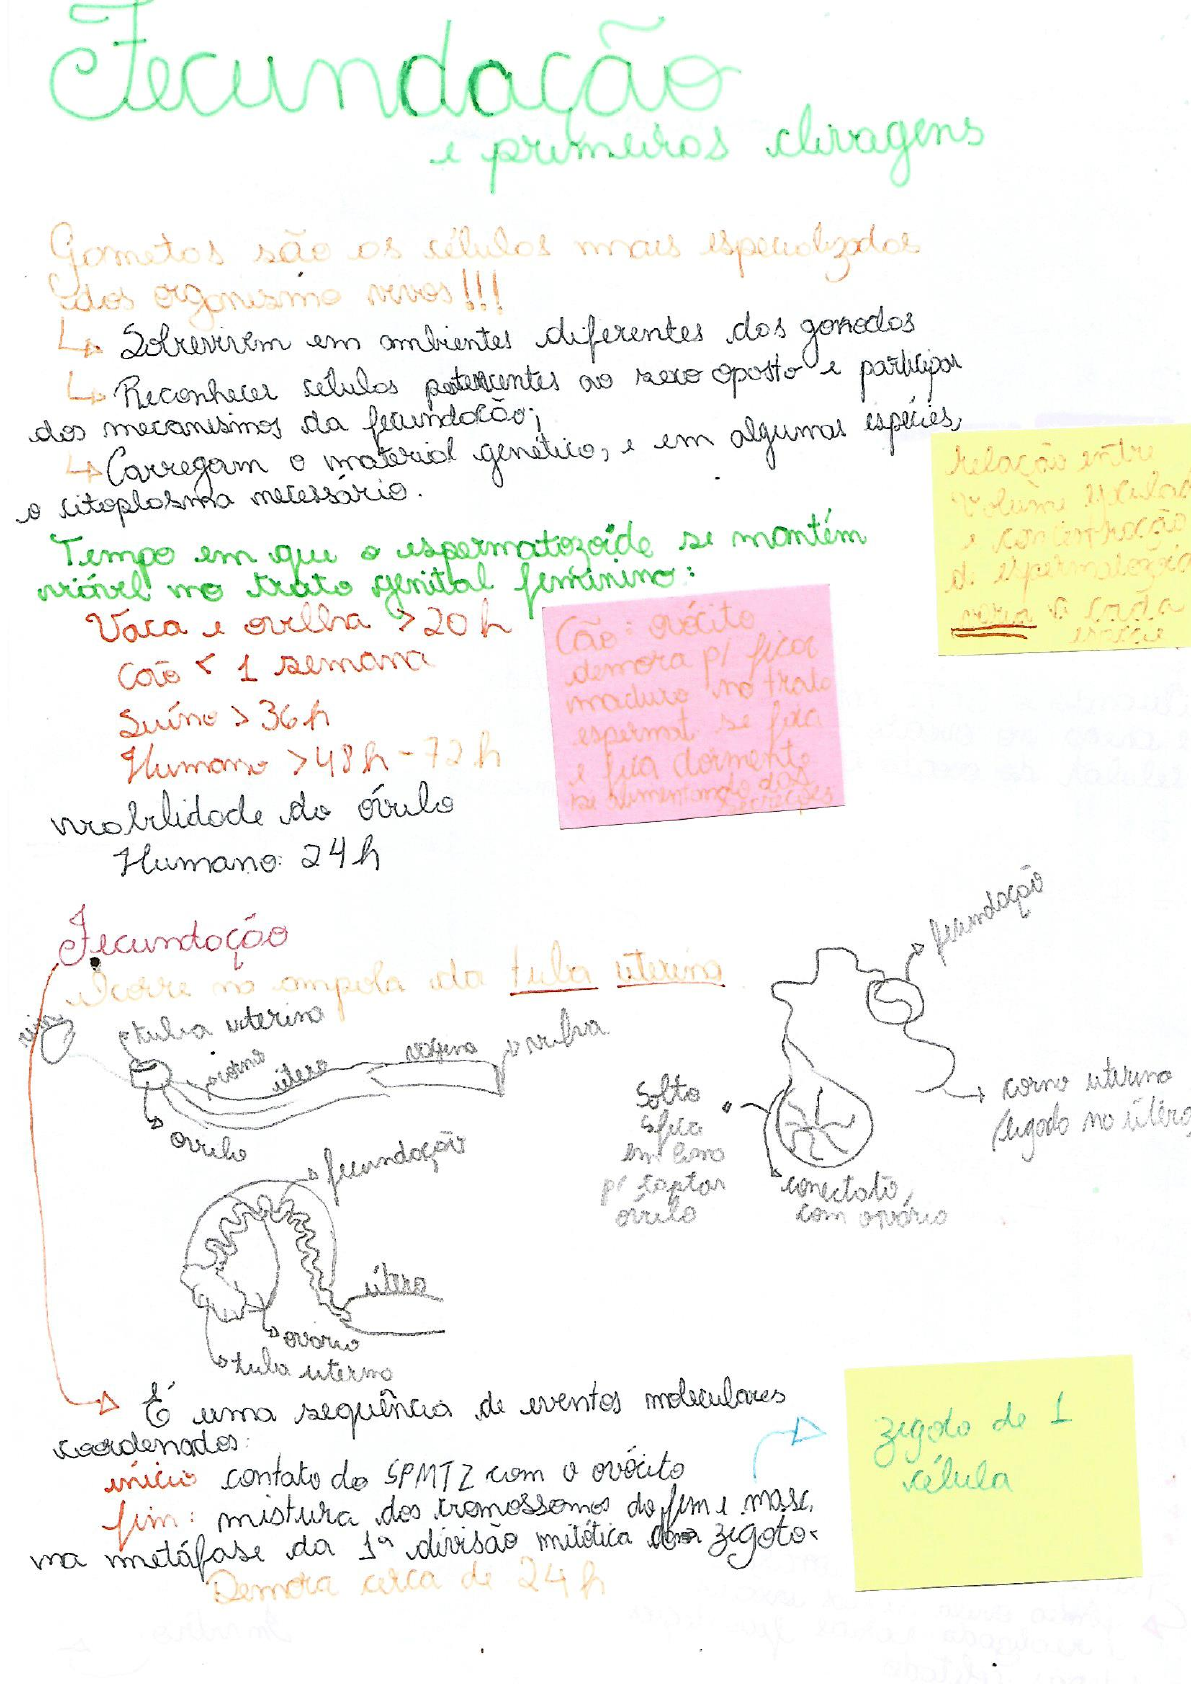 Fecundação
e primeiras clivagens
Gametas são as células mais especializadas
dos organismo vivos!!!
↳ Sobrevivem em ambientes diferentes das gonodas
↳ Reconhecer células pertencentes ao sexo oposto e participar
dos mecanismos da fecundação;
↳ Carregam o material genético, e em algumas espécies,
o citoplasma necessário.
relação entre
volume ejaculad
e concentração
d. espermatozoid
varia a cada
espécie
Tempo em que o espermatozoide se mantém
viável no trato genital feminino:
Vaca e ovelha > 20 h
Cão < 1 semana
Suíno > 36 h
Humano > 48 h - 72 h
Cão: ovócito
demora p/ ficar
maduro no trato
espermat se fixa
e fica dormente
se alimentando das
secreções
viabilidade do óvulo
Humano: 24 h
Fecundação
Ocorre na ampola da tuba uterina
tuba uterina
corno
útero
vagina
vulva
óvulo
fecundação
corno uterino
ligado no útero
solto
e fica
em cima
p/ captar
óvulo
conectato
com ovário
fecundação
útero
ovário
tuba uterina
É uma sequência de eventos moleculares
coordenados:
início contato do SPMTZ com o ovócito
fim: mistura dos cromossomos do fem e masc.
na metáfase da 1ª divisão mitótica do zigoto.
Demora cerca de 24 h
zigoto de 1
célula